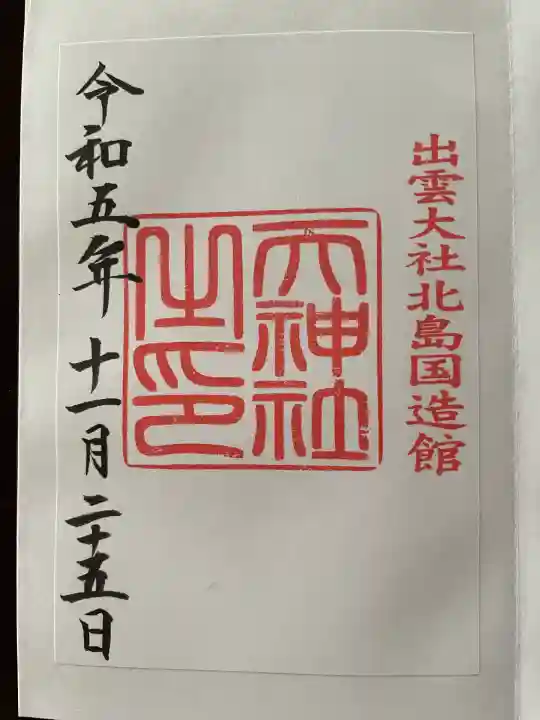 出雲大社北島国造館
天神社
之印
令和五年十一月二十五日